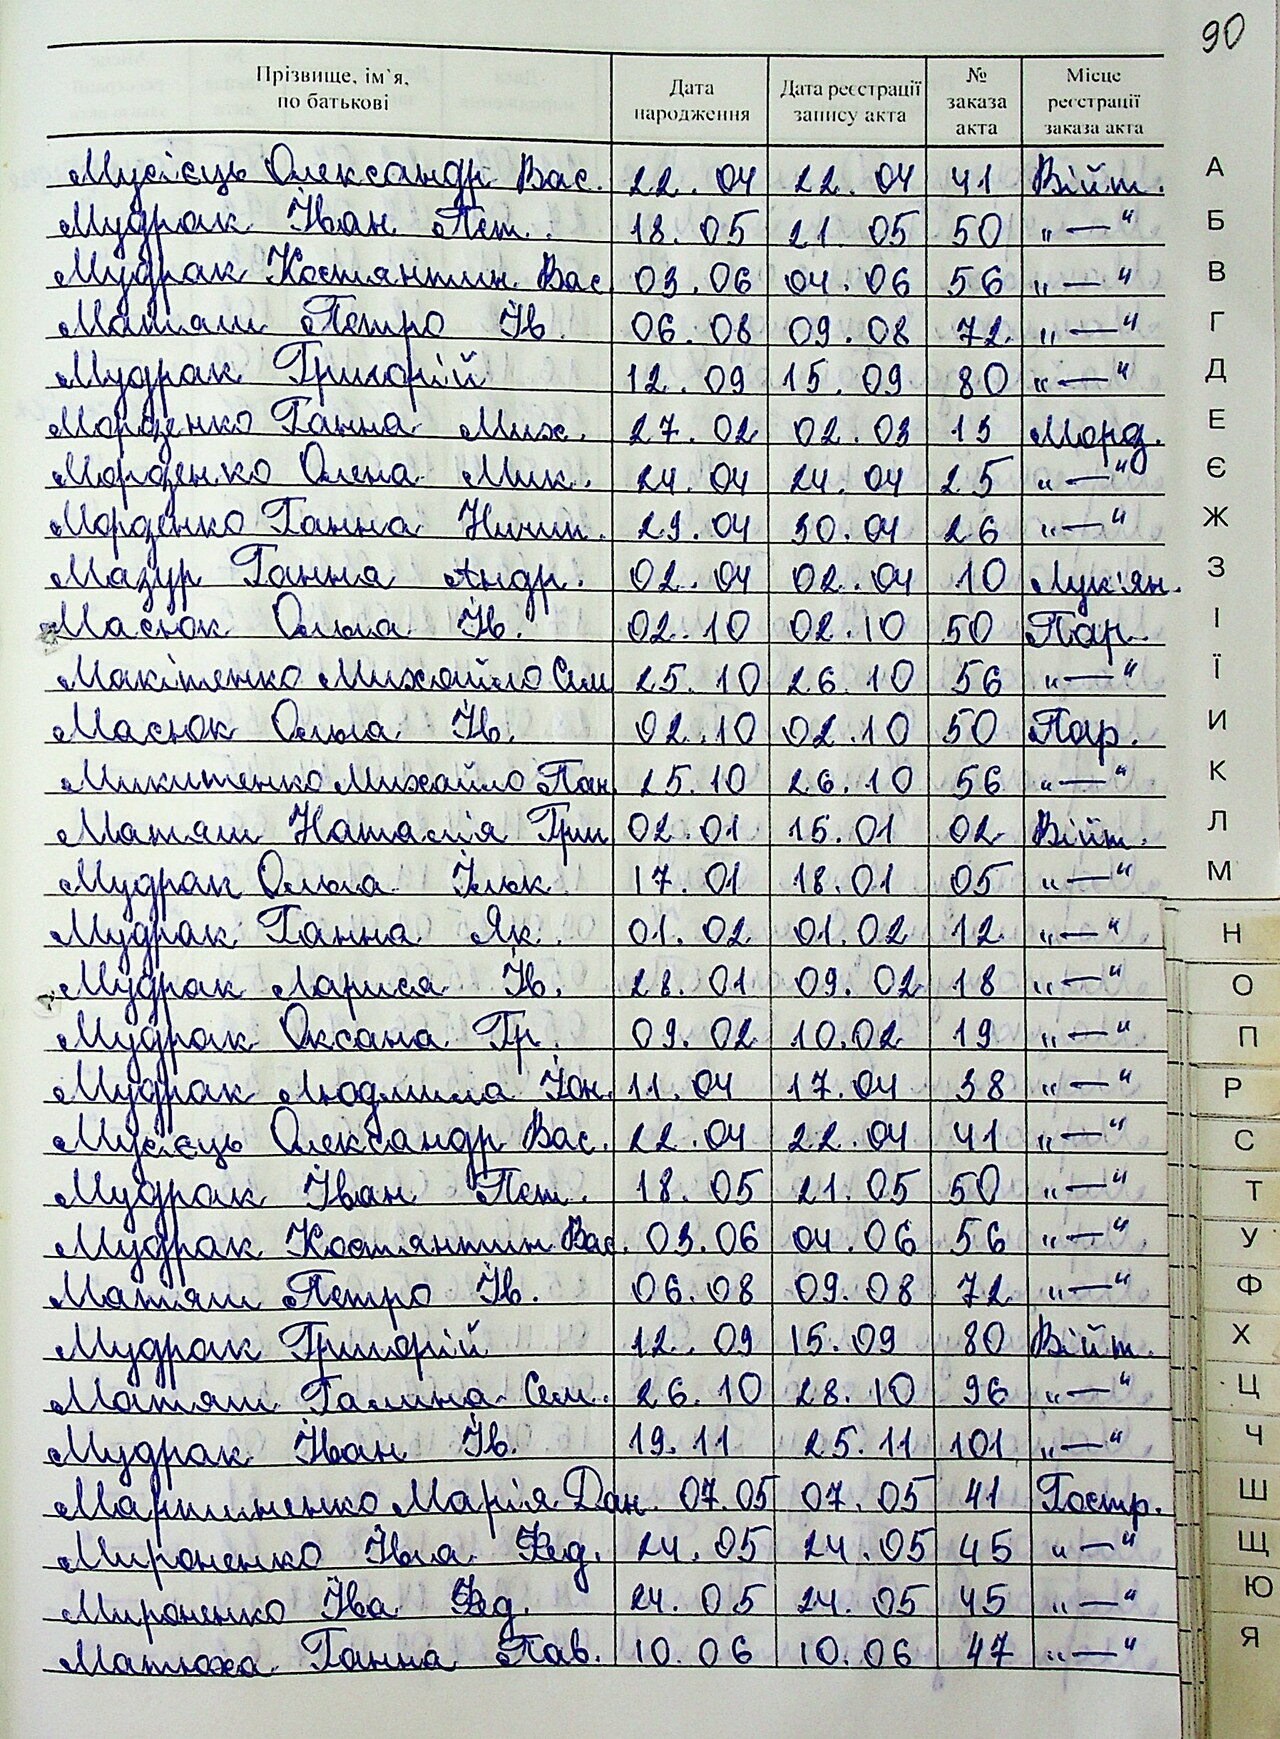 90
Прізвище, ім'я, по батькові Дата народження Дата реєстрації запису акта № заказа акта Місце реєстрації заказа акта
Мусієць Олександр Вас. 22.04 22.04 41 Війт.
Мудрак Іван Пет. 18.05 21.05 50 „—"
Мудрак Костянтин Вас 03.06 04.06 56 „—"
Матяш Петро Ів 06.08 09.08 72 „—"
Мудрак Григорій 12.09 15.09 80 „—"
Морозенко Ганна Мих. 27.02 02.03 13 Мороз.
Морозенко Олена Мик. 24.04 24.04 25 „—"
Морозенко Ганна Ничип. 29.04 30.04 26 „—"
Мазур Ганна Андр. 02.04 02.04 10 Лук'ян.
Масюк Ольга Ів. 02.10 02.10 50 Пар.
Макітенко Михайло Сем 25.10 26.10 56 „—"
Масюк Ольга Ів. 02.10 02.10 50 Пар.
Микитенко Михайло Пан. 25.10 26.10 56 „—"
Матяш Наталія Григ 02.01 15.01 02 Війт.
Мудрак Ольга Ільк 17.01 18.01 05 „—"
Мудрак Ганна Як. 01.02 01.02 12 „—"
Мудрак Лариса Ів. 28.01 09.02 18 „—"
Мудрак Оксана Гр. 09.02 10.02 19 „—"
Мудрак Людмила Йон. 11.04 17.04 38 „—"
Мусієць Олександр Вас. 22.04 22.04 41 „—"
Мудрак Іван Пет. 18.05 21.05 50 „—"
Мудрак Костянтин Вас. 03.06 04.06 56 „—"
Матяш Петро Ів. 06.08 09.08 72 „—"
Мудрак Григорій 12.09 15.09 80 Війт.
Матяш Галина Сем. 26.10 28.10 96 „—"
Мудрак Іван Ів. 19.11 25.11 101 „—"
Мартиненко Марія Дан. 07.05 07.05 41 Гостр.
Мироненко Їва Фед. 24.05 24.05 45 „—"
Мироненко Їва Фед. 24.05 24.05 45 „—"
Матюха Ганна Пав. 10.06 10.06 47 „—"
А
Б
В
Г
Д
Е
Є
Ж
З
І
Ї
И
К
Л
М
Н
О
П
Р
С
Т
У
Ф
Х
Ц
Ч
Ш
Щ
Ю
Я